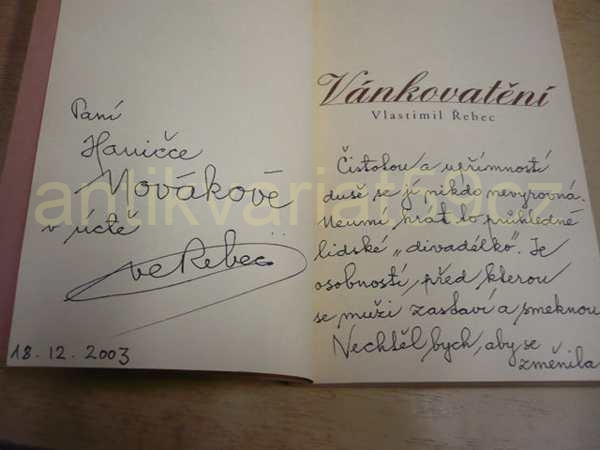 Paní
Haničce
Novákové
v úctě
ve Řebec
18.12.2003
Vánkovatění
Vlastimil Řebec
Čistotou a upřímností
duše se jí nikdo nevyrovná.
Neumí hrát to průhledné
lidské „divadélko“. Je
osobností, před kterou
se muži zastaví a smeknou
Nechtěl bych, aby se
změnila